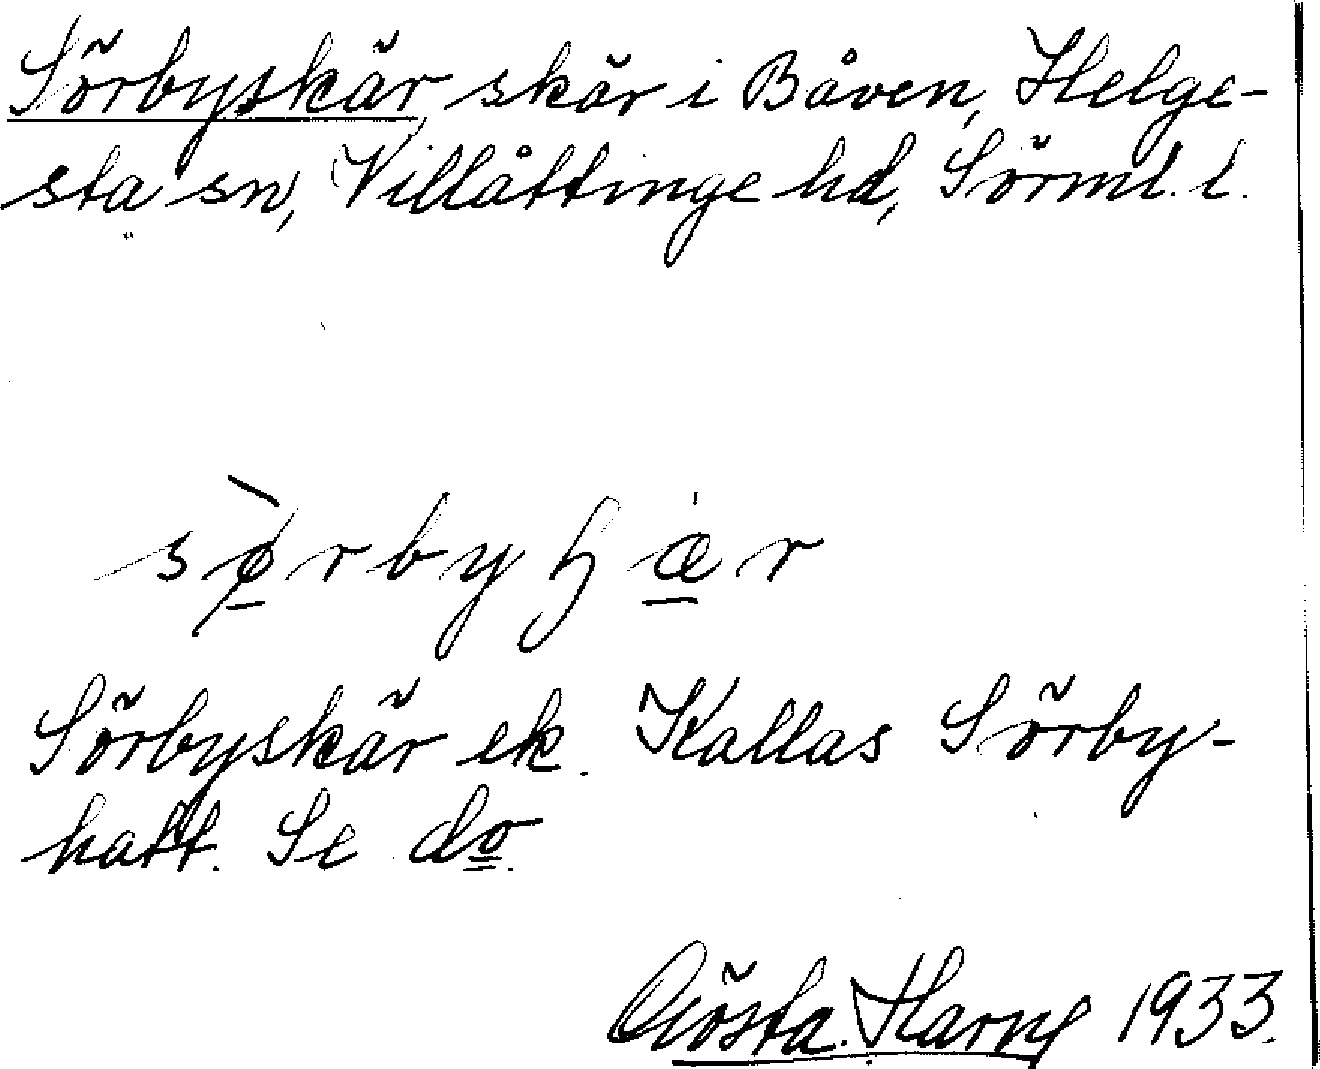 Sörbyskär skär i Båven, Helge-
sta sn, Villåttinge hd, Sörml. l.
Sörbyskär ek. Kallas Sörby-
hatt. Se do.
Gösta Harng 1933.